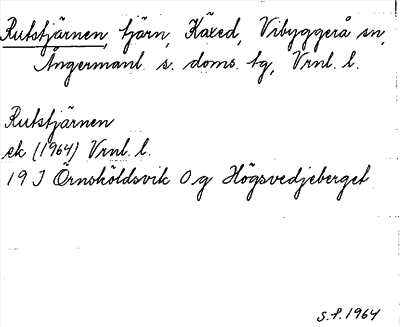 Rutstjärnen, tjärn, Käxed, Vibyggerå sn,
Ångermanl. s. doms. tg, Vrnl. l.
Rutstjärnen
ek (1964) Vrnl. l.
19 J Örnsköldsvik 0 g Högsvedjeberget
S.P. 1964